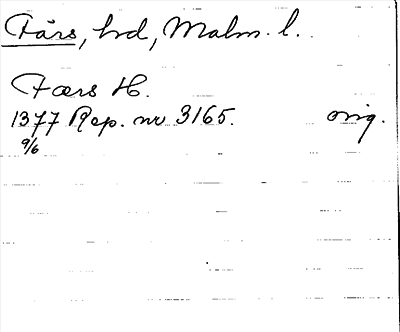 Färs, hd, Malm. l.
Færs H.
1377 Rep. nr 3165. orig.
9/6